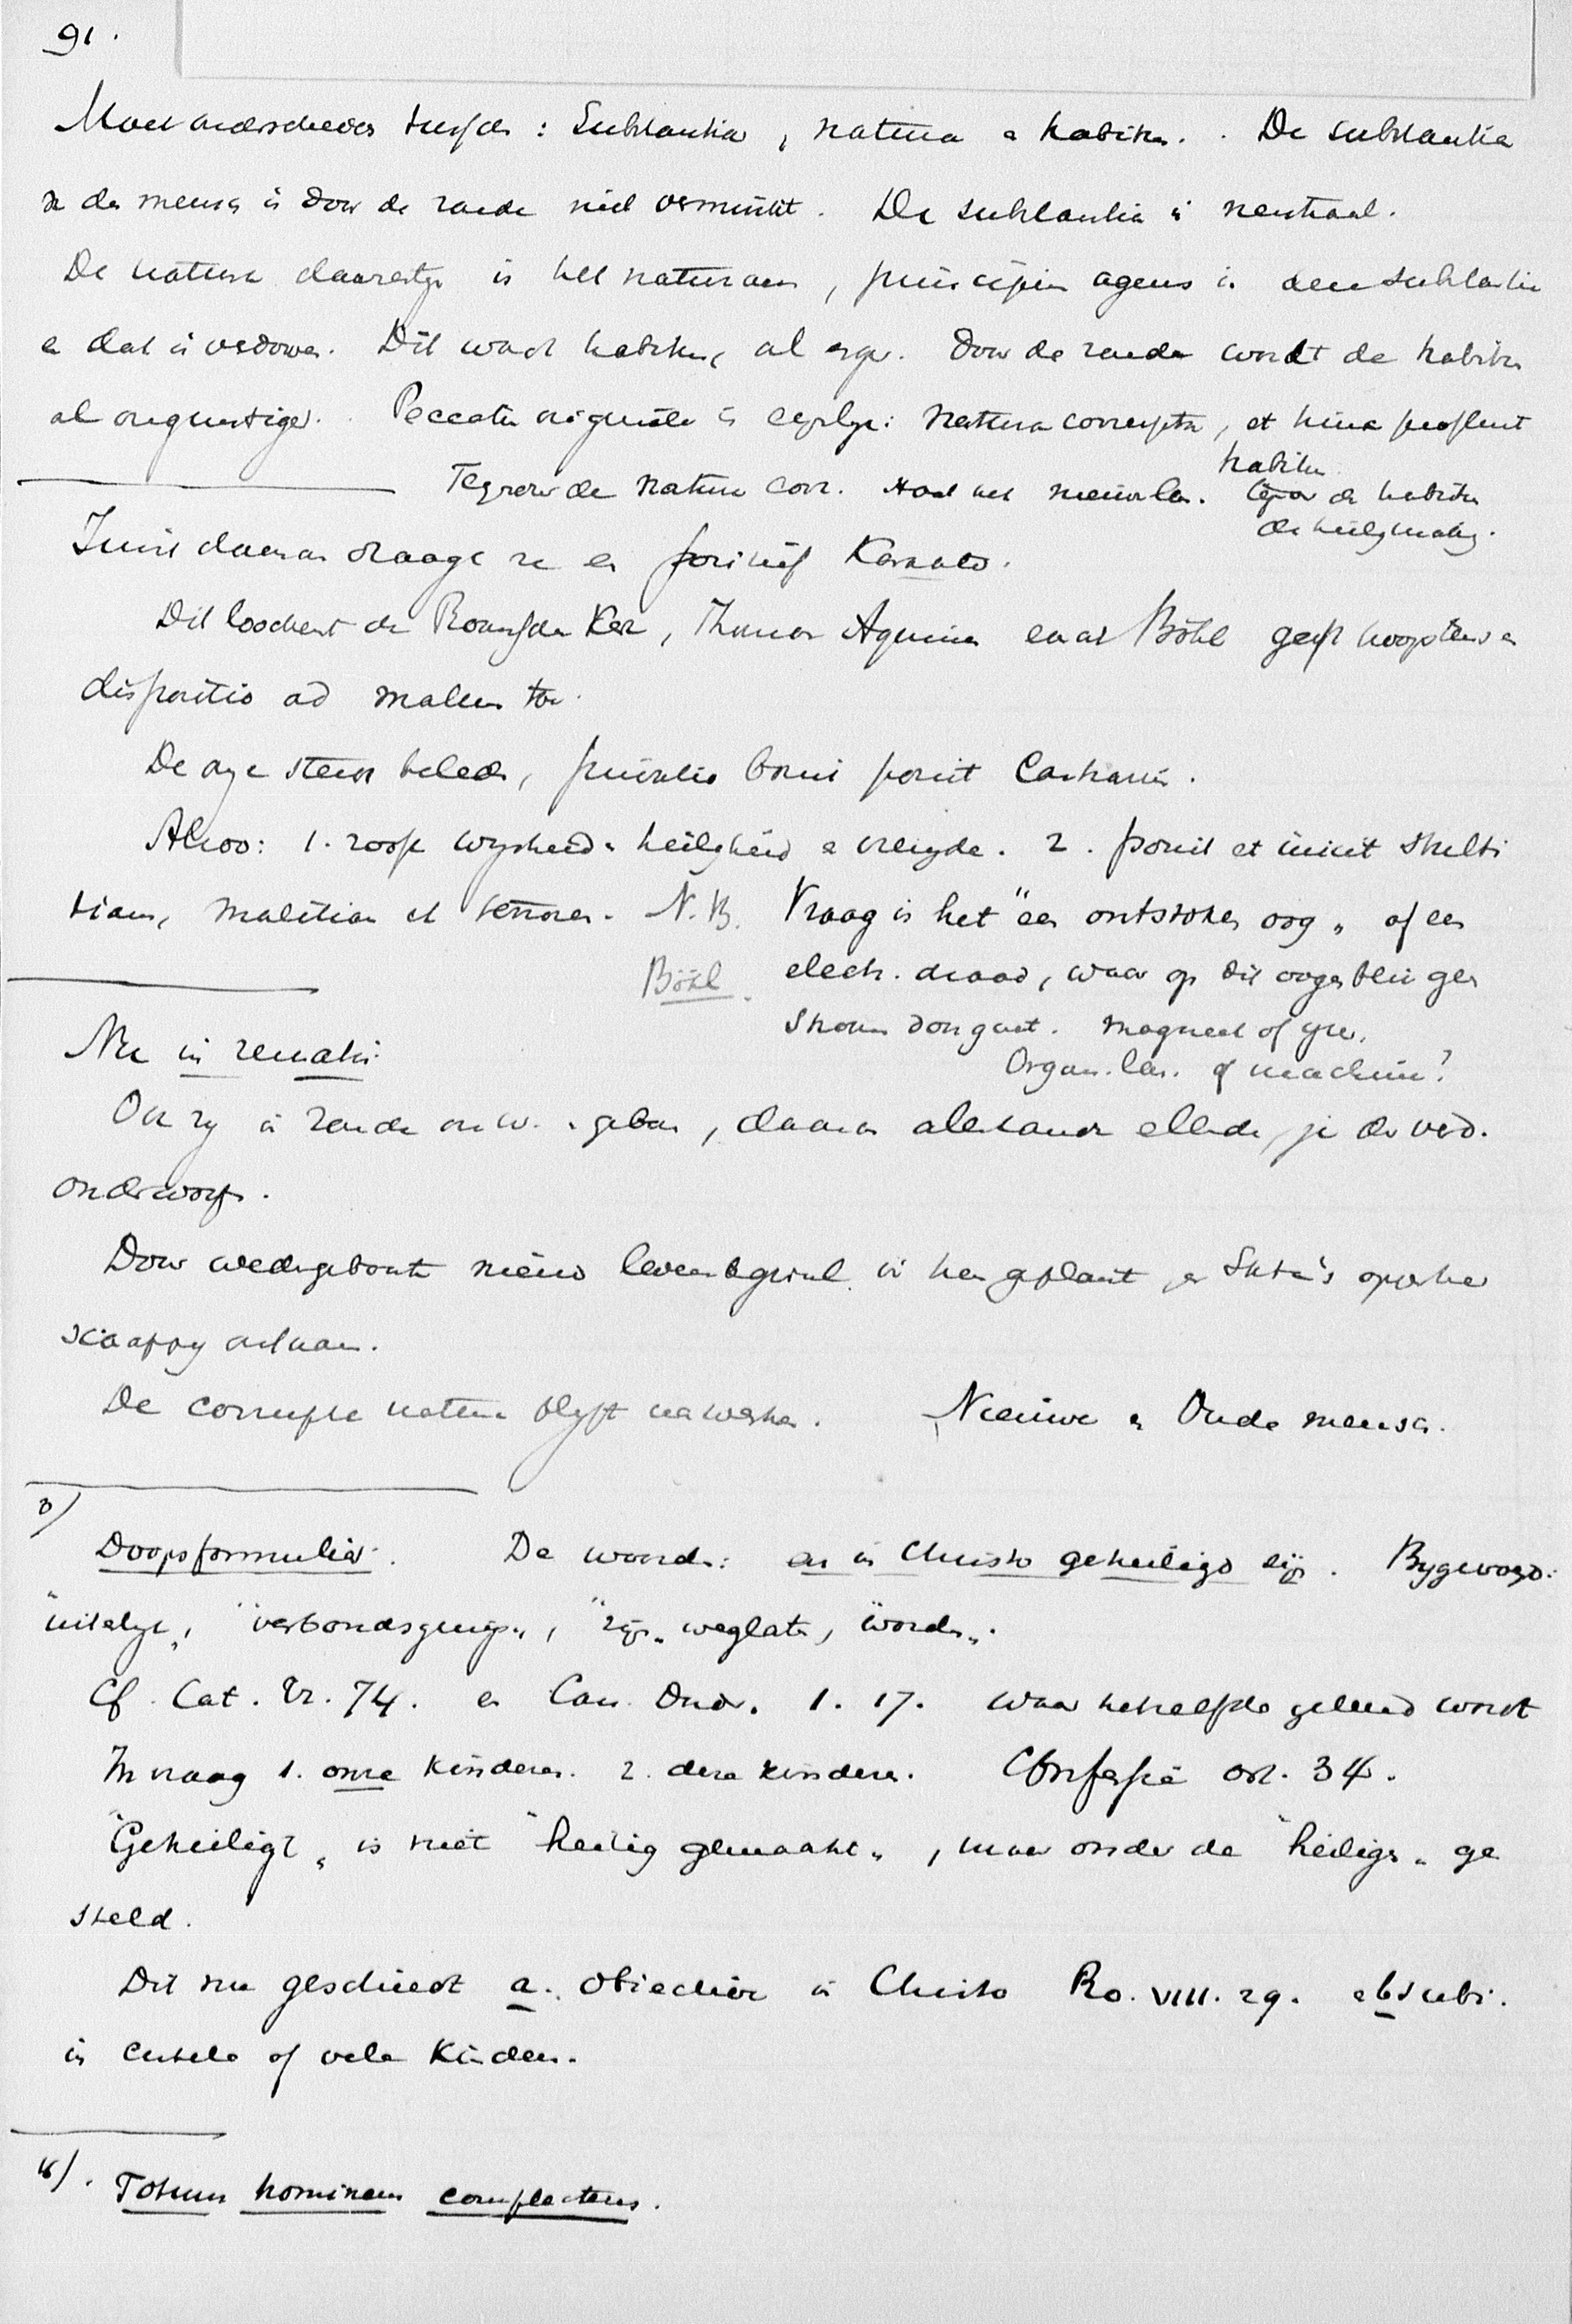 91.
Moet onderscheiden tusschen: Substantia, natura en habitus. De substantia
de mensch is door de zonde niet verminkt. De substantia is neutraal.
De natura daarentegen is het naturans, principium agens in deze substantia
en dat is verdorven. Dit wordt habitus, al erger. Door de zonde wordt de habitus
al ongunstiger. Peccatum originale is eigenlijk: Natura corrupta, et hinc profluit
habitus
Tegenover de natura corr. staat het nieuwe leven. Tegenover de habitus
de heiligmaking.
draagt ze een positief Karakter.
Dit loochent de Roomsche Kerk, Thomas Aquinas en ook Böhl geeft hoogstens een
dispositio ad malum toe.
De privatio boni ponit contrarium.
Alzoo: 1. roof wijsheid heiligheid en vreugde. 2. ponit et iniicit stulti
tiam, malitiam et terrorem. N.B. Vraag is het "een ontstoken oog" of een
Böhl. electr. draad, waar op dit oogenblik geen
stroom doorgaat. Magneet of ijzer.
Organ. leven of machine?
Nu in renatis:
Ook zij in zonde ontv. en geboren, daarom allerhande ellende, ja der verd.
onderworpen.
Door wedergeboorte nieuw levensbeginsel in hen geplant en Satan's opperheer
schappij ontnomen.
De corrupte natura blijft nawerken. Nieuwe en Oude mensch.
Doopsformulier. De woorden: en in Christo geheiligd zijn. Bijgevoegd:
"uiterlijk", "verbondsgewijs", "zijn" weglaten, "worden".
Cf. Cat. Vr. 74. en Can. Dord. 1. 17. waar hetzelfde geleerd wordt
In vraag 1. onze kinderen. 2. deze kinderen. Confessie art. 34.
"Geheiligd" is niet "heilig gemaakt", maar onder de "heiligen" ge
steld.
Dit nu geschiedt a. Obiective in Christo Ro. VIII. 29. en b subi.
in enkele of vele kinderen.
Totum hominem complectens.